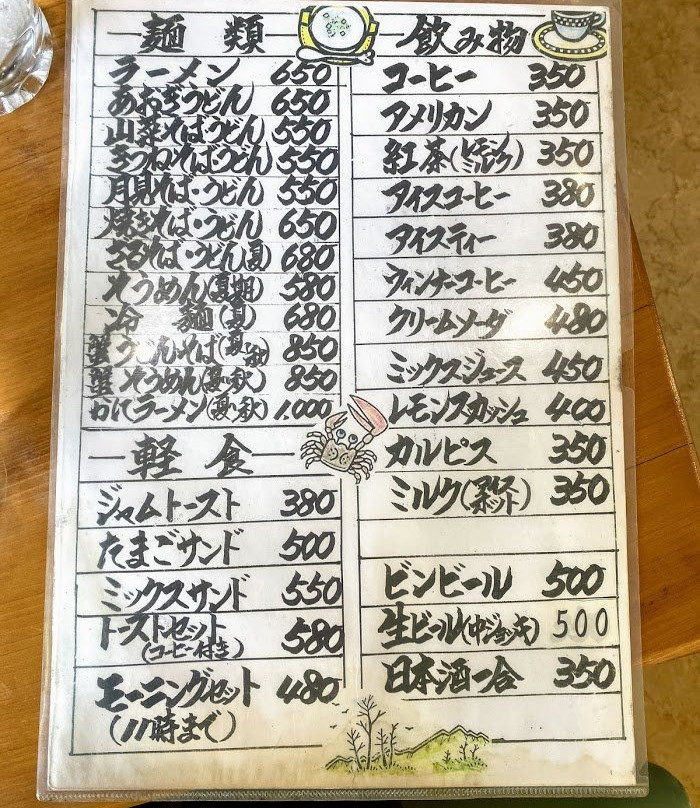 麺類
ラーメン 650
あおぎうどん 650
山菜そばうどん 550
きつねそばうどん 550
月見そば・うどん 550
焼きそば・うどん 650
ざるそば・うどん(夏) 680
そうめん(夏期) 580
冷麺(夏) 680
蟹うどんそば(夏秋) 850
蟹そうめん(夏・秋) 850
かにラーメン(夏・秋) 1.000
軽食
ジャムトースト 380
たまごサンド 500
ミックスサンド 550
トーストセット 580
(コーヒー付き)
モーニングセット 480
(11時まで)
飲み物
コーヒー 350
アメリカン 350
紅茶(レモン ミルク) 350
アイスコーヒー 380
アイスティー 380
ウィンナーコーヒー 450
クリームソーダ 480
ミックスジュース 450
レモンスカッシュ 400
カルピス 350
ミルク(アイス ホット) 350
ビンビール 500
生ビール(中ジョッキ) 500
日本酒一合 350